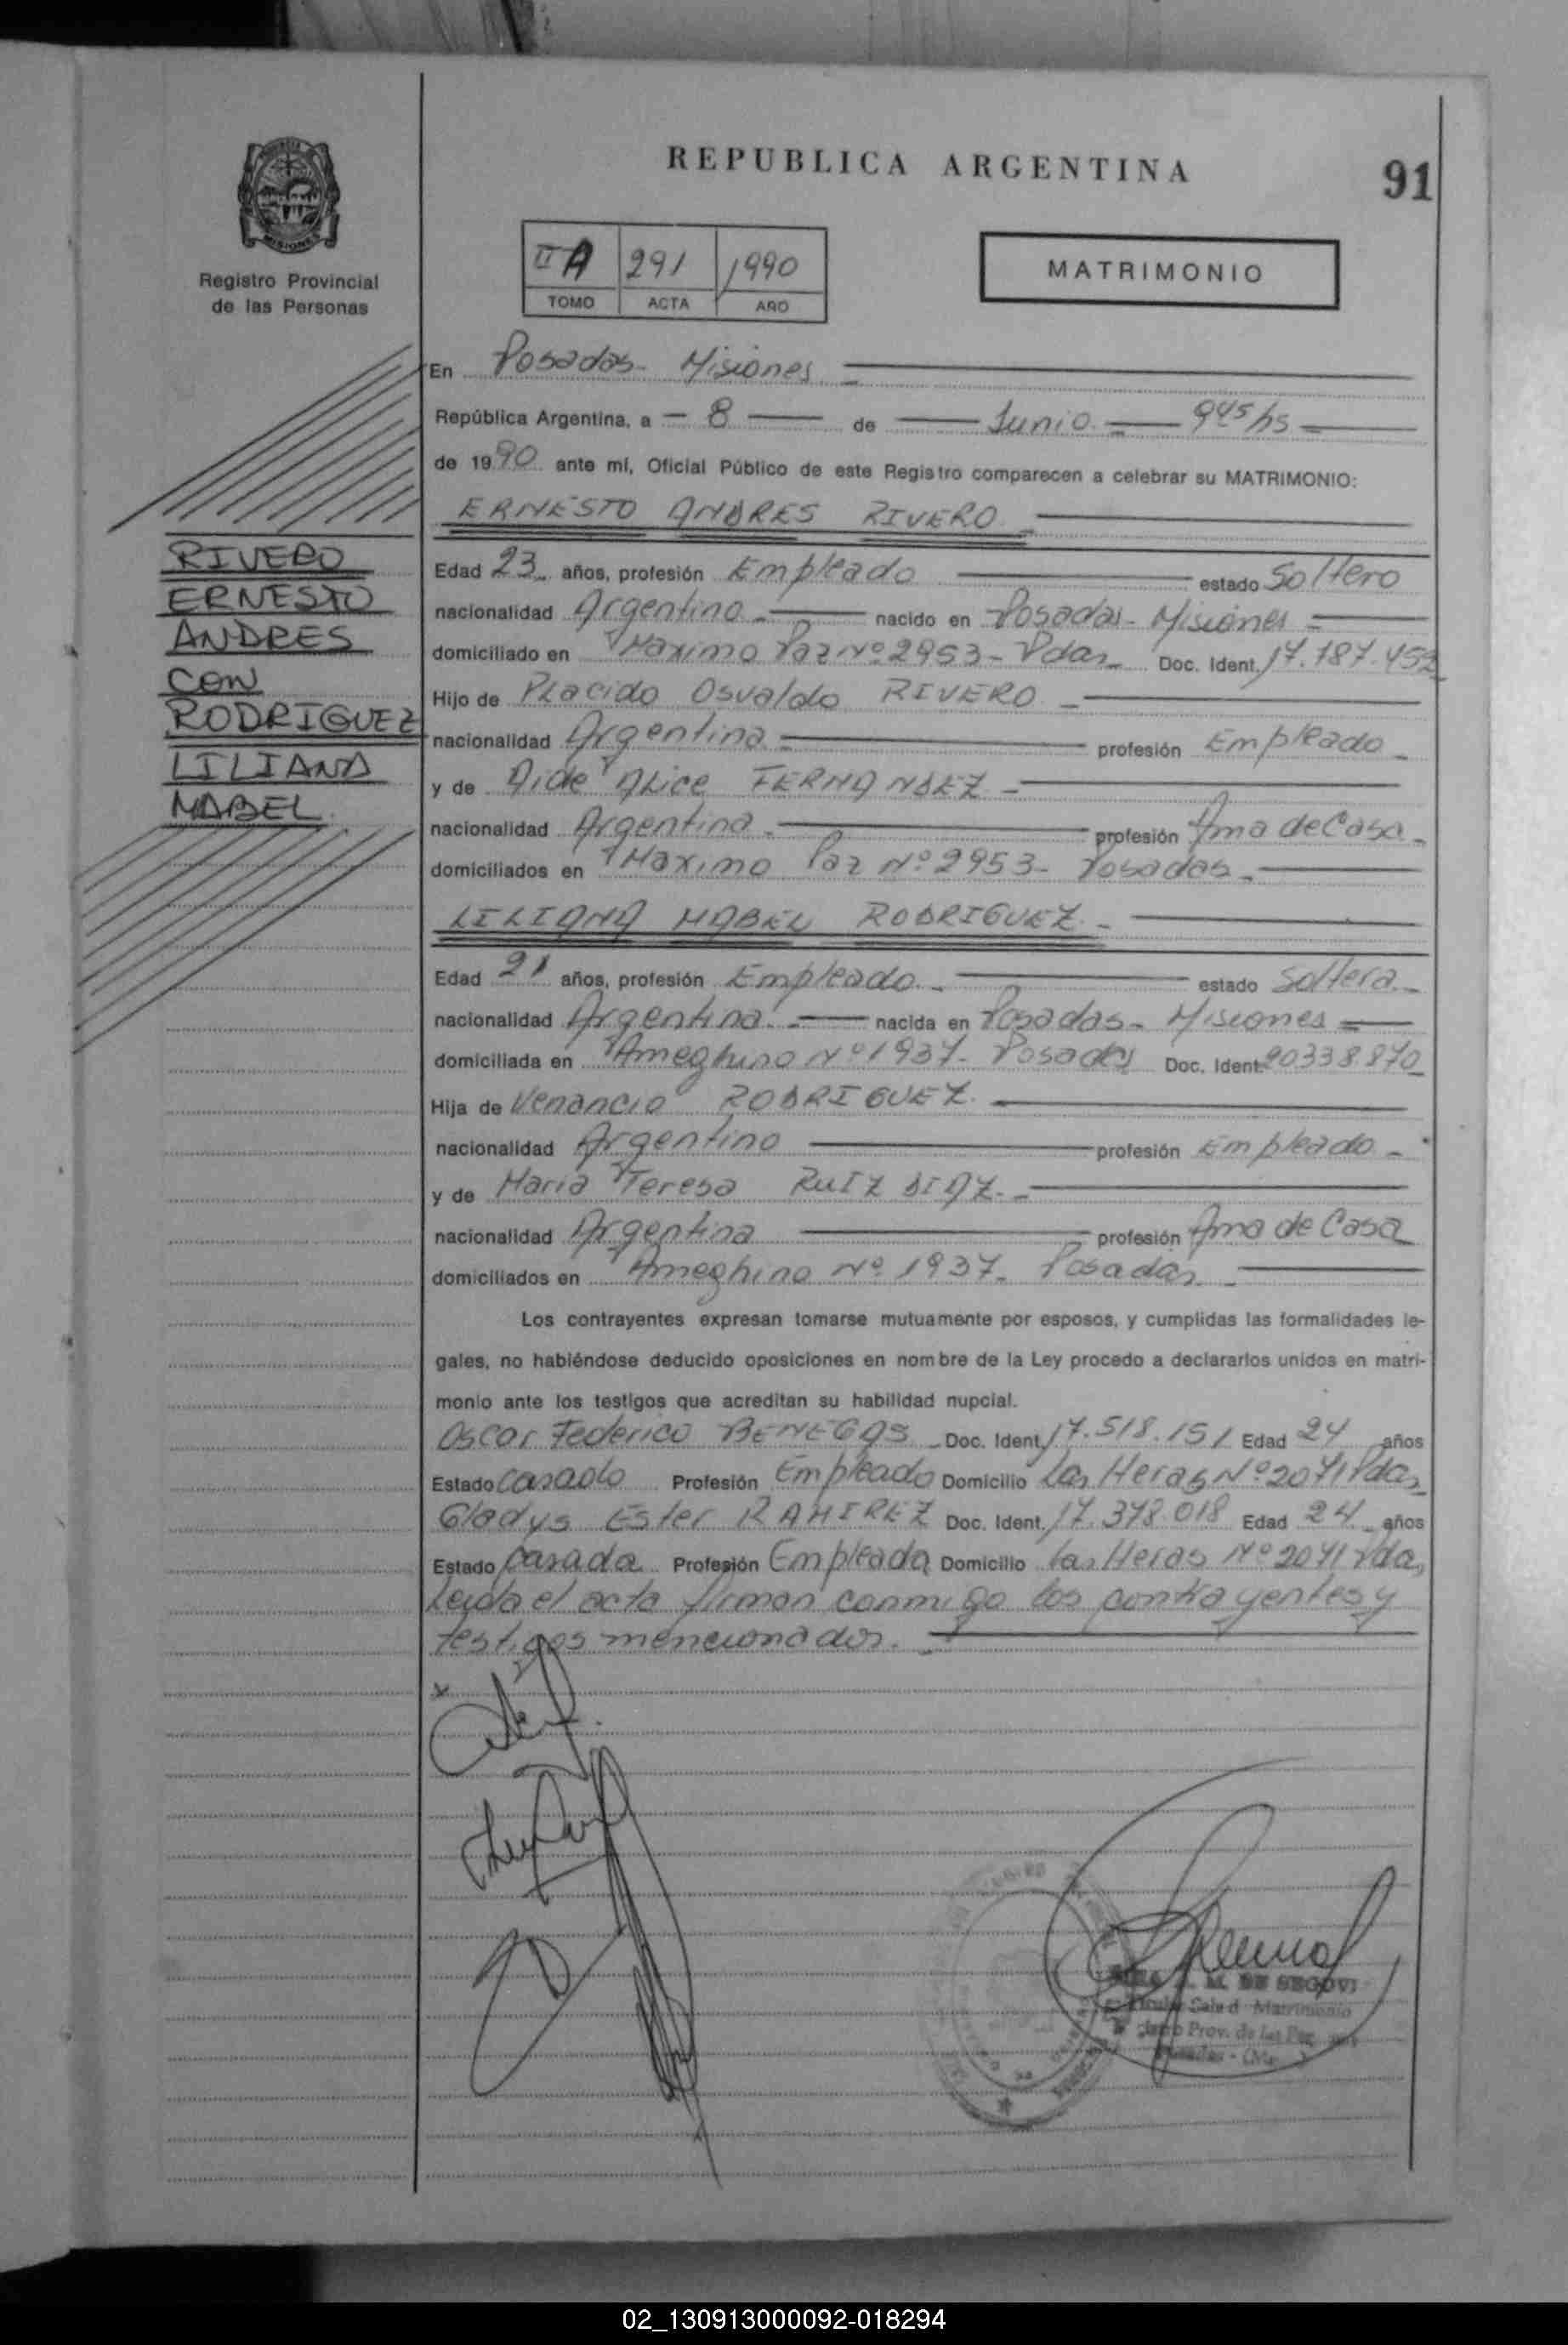 REPUBLICA ARGENTINA
91
MISIONES
Registro Provincial
de las Personas
II A 291 1990
TOMO ACTA AÑO
MATRIMONIO
En Posadas - Misiones
República Argentina, a - 8 - de Junio - 9 45 hs
de 1990 ante mí, Oficial Público de este Registro comparecen a celebrar su MATRIMONIO:
ERNESTO ANDRES RIVERO
RIVERO
ERNESTO
ANDRES
CON
RODRIGUEZ
LILIANA
MABEL
Edad 23 años, profesión Empleado estado Soltero
nacionalidad Argentino nacido en Posadas - Misiones
domiciliado en Maximo Paz Nº 2953 - Pdas Doc. Ident. 17.787.452
Hijo de Placido Osvaldo RIVERO
nacionalidad Argentina profesión Empleado
y de Aide Alice FERNANDEZ
nacionalidad Argentina profesión Ama de Casa
domiciliados en Maximo Paz Nº 2953 - Posadas
LILIANA MABEL RODRIGUEZ
Edad 21 años, profesión Empleado estado Soltera
nacionalidad Argentina nacida en Posadas - Misiones
domiciliada en Ameghino Nº 1937 - Posadas Doc. Ident. 20338870
Hija de Venancio RODRIGUEZ
nacionalidad Argentino profesión Empleado
y de Maria Teresa RUIZ DIAZ
nacionalidad Argentina profesión Ama de Casa
domiciliados en Ameghino Nº 1937 - Posadas
Los contrayentes expresan tomarse mutuamente por esposos, y cumplidas las formalidades le-
gales, no habiéndose deducido oposiciones en nombre de la Ley procedo a declararlos unidos en matri-
monio ante los testigos que acreditan su habilidad nupcial.
Oscar Federico BENEGAS Doc. Ident. 17.518.151 Edad 24 años
Estado Casado Profesión Empleado Domicilio Las Heras Nº 2071 Pdas
Gladys Ester RAMIREZ Doc. Ident. 17.378.018 Edad 24 años
Estado Casada Profesión Empleada Domicilio Las Heras Nº 2071 Pda,
Leida el acta firman conmigo los contrayentes y
testigos mencionados.
M. DE SEGOVI
Sala d Matrimonio
Prov. de las Per
02_130913000092-018294